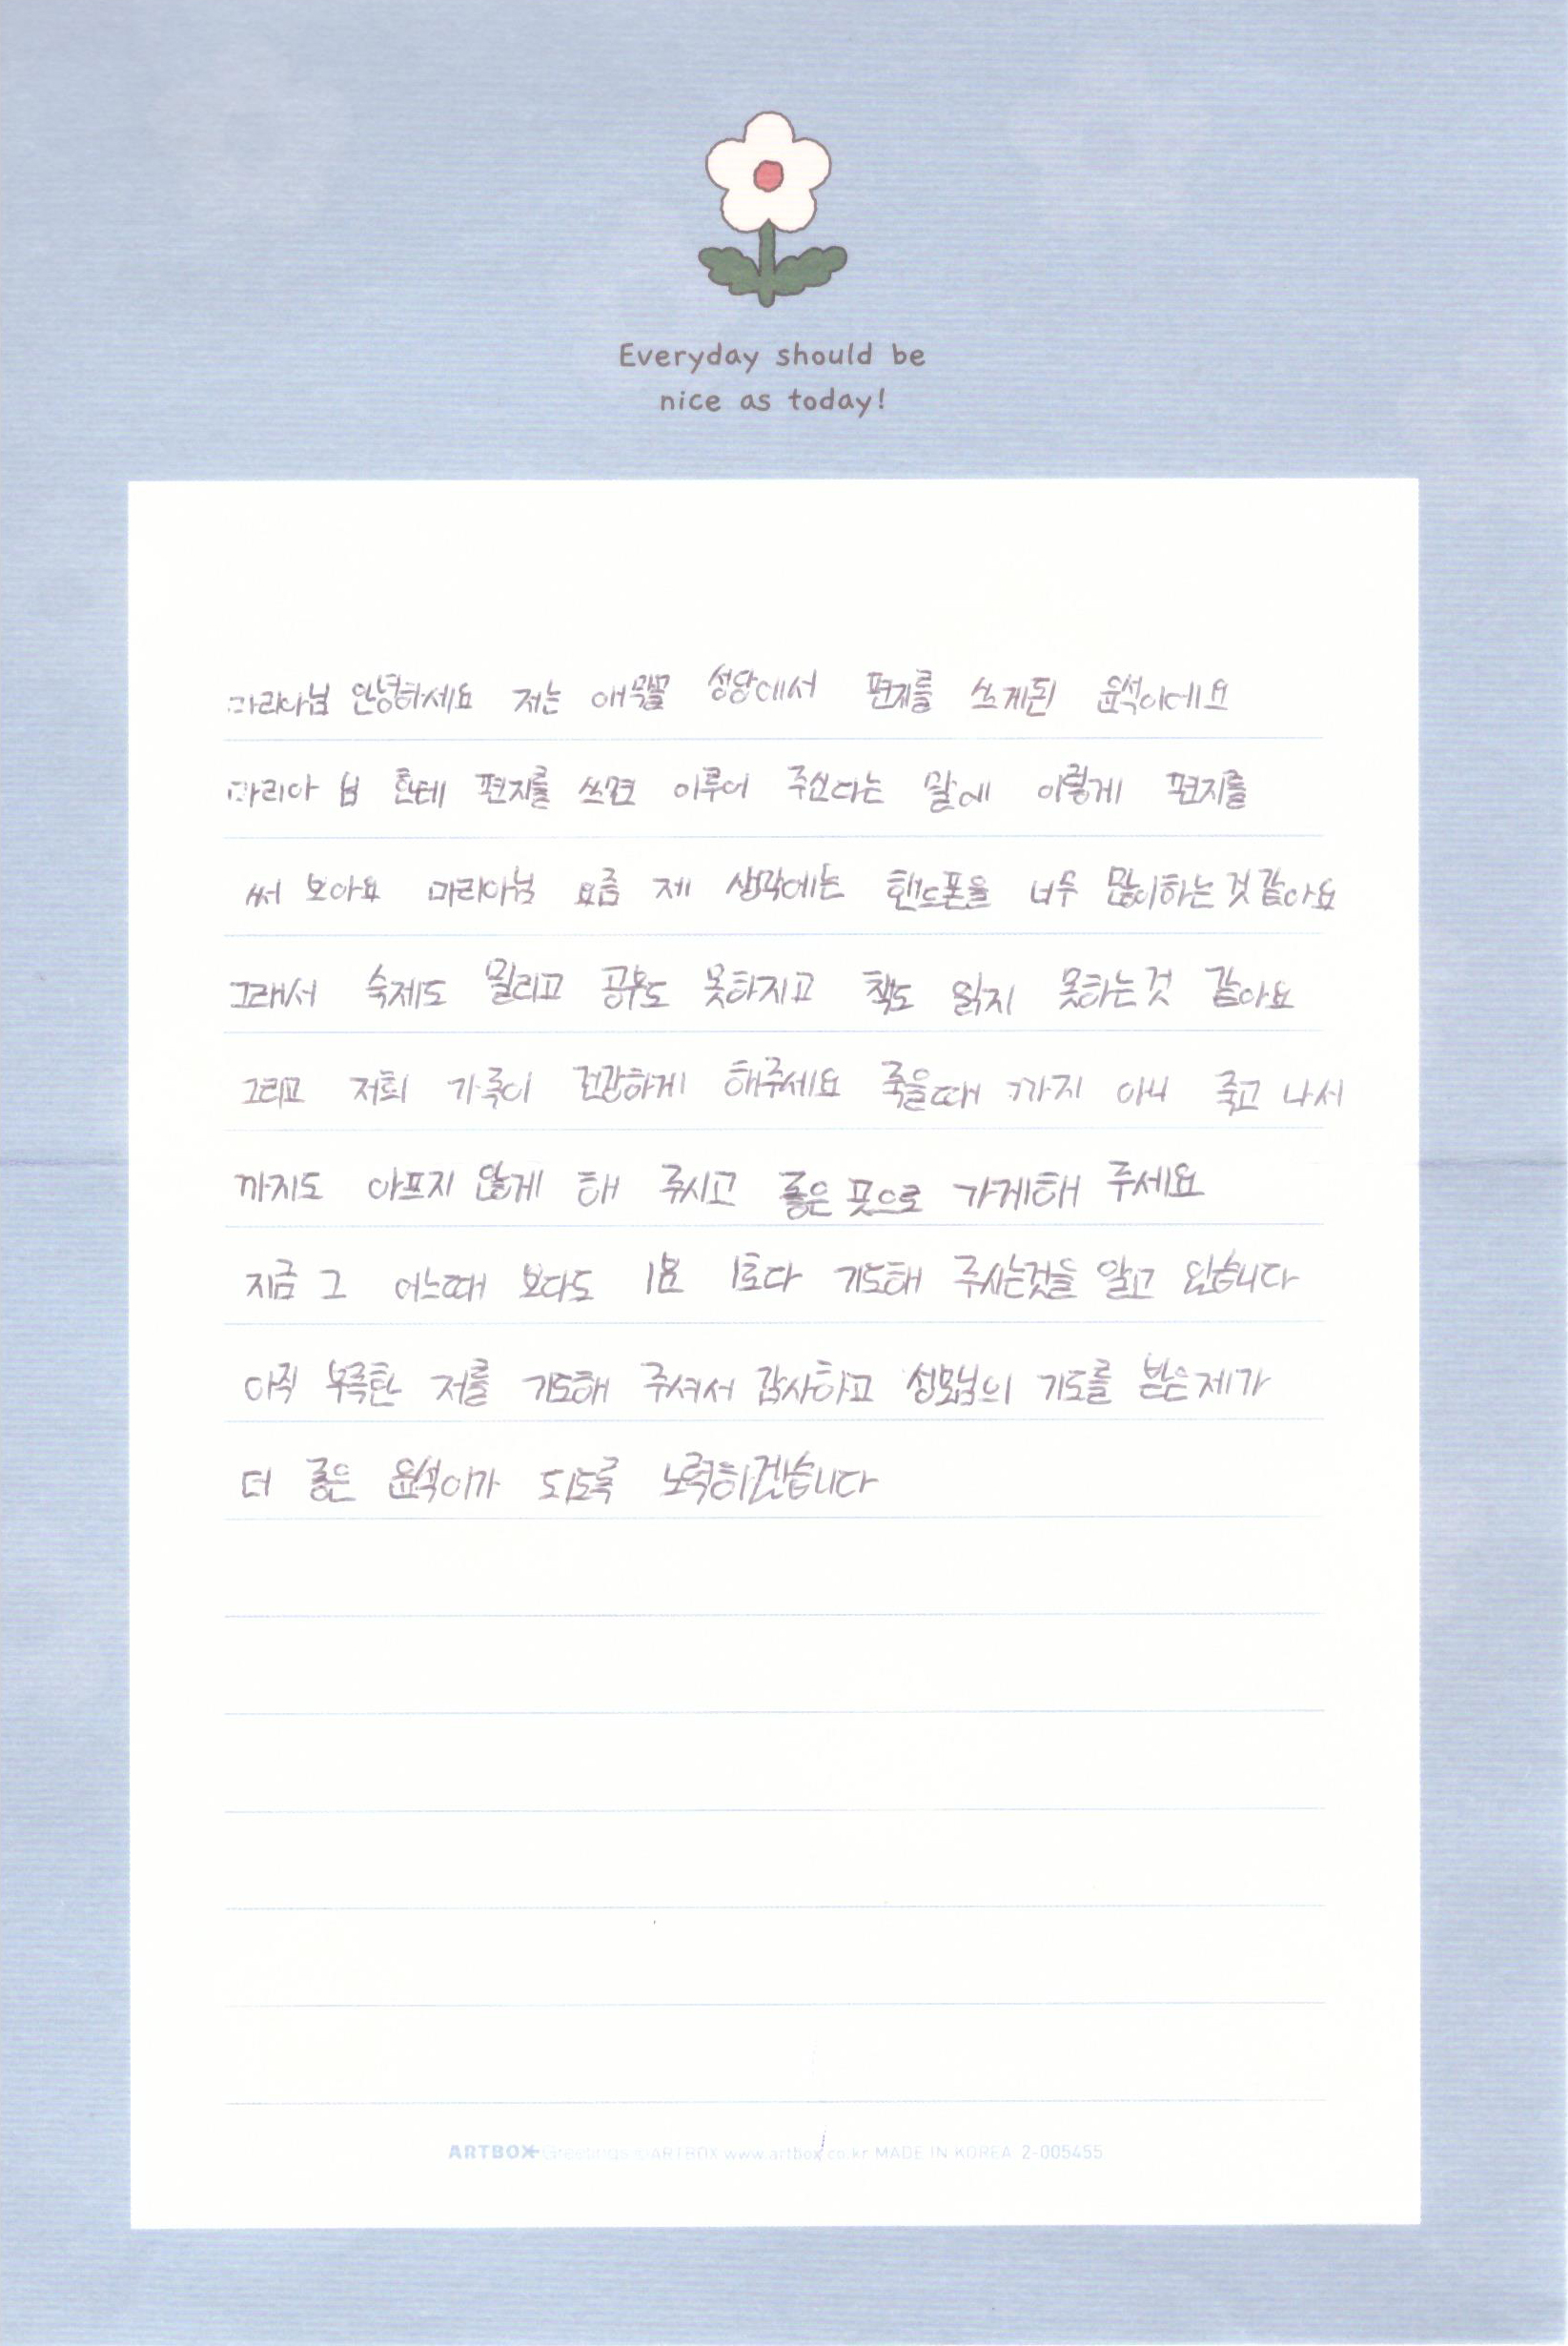 Everyday should be
nice as today!
마리아님 안녕하세요 저는 성당에서 편지를 쓰게된 윤석이에요
마리아 님 한테 편지를 쓰면 이루어 주신다는 말에 이렇게 편지를
써 보아요 마리아님 요즘 제 생각에는 핸드폰을 너무 많이하는 것 같아요
그래서 숙제도 밀리고 공부도 못하지고 책도 읽지 못하는것 같아요
그리고 저희 가족이 건강하게 해주세요 죽을때 까지 아니 죽고 나서
까지도 아프지 않게 해 주시고 좋은 곳으로 가게해 주세요
지금 그 어느때 보다도 1분 1초다 기도해 주시는것을 알고 있습니다
아직 부족한 저를 기도해 주셔서 감사하고 성모님의 기도를 받은 제가
더 좋은 윤석이가 되도록 노력하겠습니다
ARTBOX Greetings ©ARTBOX www.artbox.co.kr MADE IN KOREA 2-005455